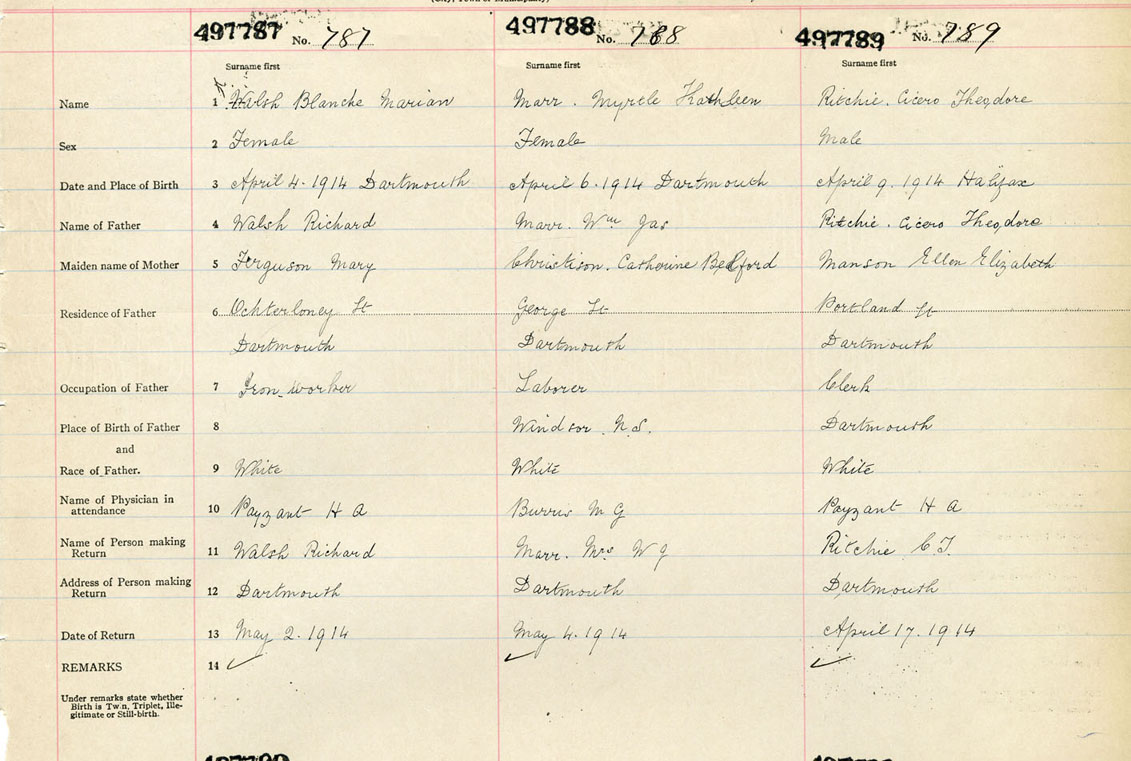 (City, Town or Municipality)
497787 No. 787 497788 No. 788 497789 No. 789
Surname first Surname first Surname first
Name 1 Walsh Blanche Marian Marr. Myrtle Kathleen Ritchie. Cicero Theodore
Sex 2 Female Female Male
Date and Place of Birth 3 April 4. 1914 Dartmouth April 6. 1914 Dartmouth April 9. 1914 Halifax
Name of Father 4 Walsh Richard Marr. Wm Jas Ritchie. Cicero Theodore
Maiden name of Mother 5 Ferguson Mary Christison. Catherine Bedford Manson Ellen Elizabeth
Residence of Father 6 Ochterloney St George St Portland St
Dartmouth Dartmouth Dartmouth
Occupation of Father 7 Iron worker Laborer Clerk
Place of Birth of Father 8 Windsor. N.S. Dartmouth
and
Race of Father. 9 White White White
Name of Physician in
attendance 10 Payzant H A Burris M G Payzant H A
Name of Person making
Return 11 Walsh Richard Marr. Mrs W J Ritchie C.T.
Address of Person making
Return 12 Dartmouth Dartmouth Dartmouth
Date of Return 13 May 2. 1914 May 4. 1914 April 17. 1914
REMARKS 14 ✓ ✓ ✓
Under remarks state whether
Birth is Twin, Triplet, Ille-
gitimate or Still-birth.